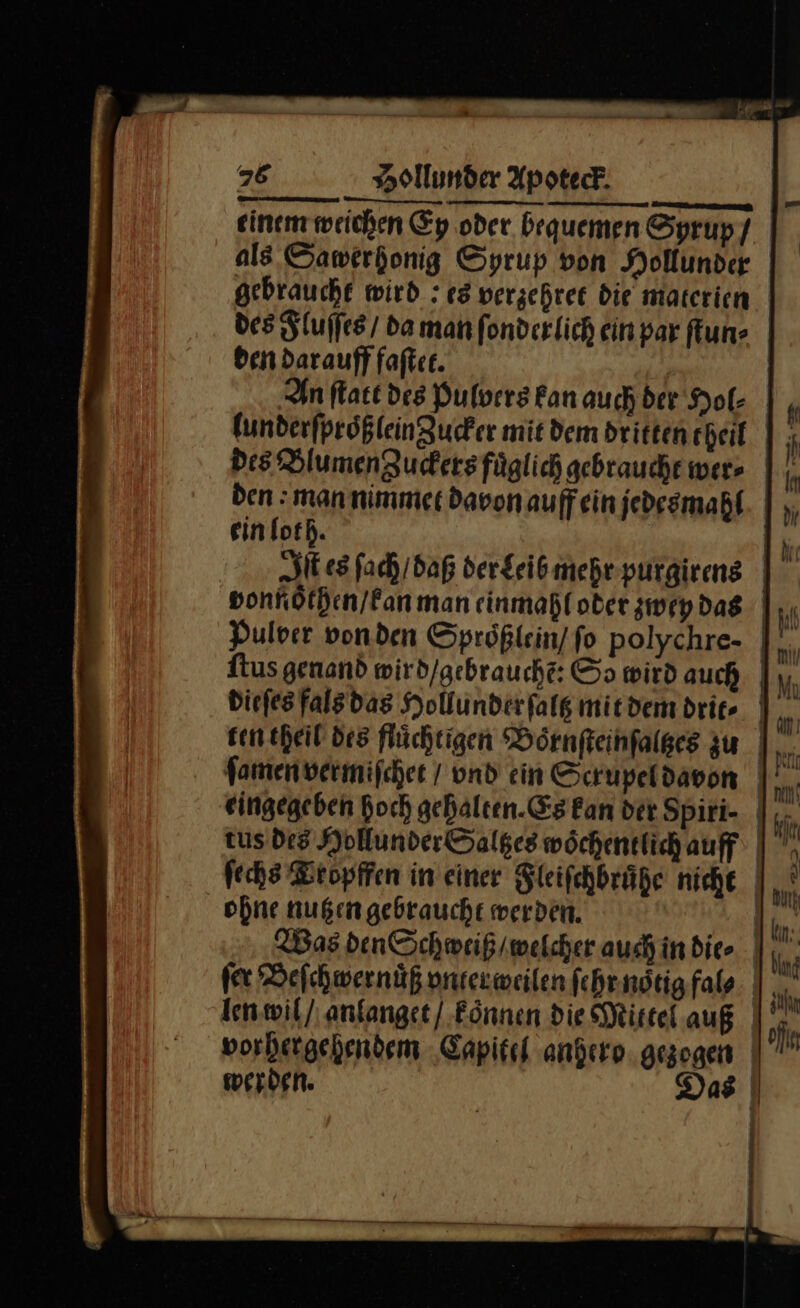 76 Hollunder Apoteck.
einem weichen Ey oder bequemen Syrup /
als Sawerhonig Syrup von Hollunder
gebraucht wird : es verzehret die materien
des Flusses / da man ſonderlich ein par ſtun⸗
den darauff faſtet.
An ſtatt des Pulvers kan auch der Hol⸗
lunderſproͤßleinZucker mit dem dritten theil
des BlumenZuckers fuͤglich gebraucht wer⸗
den : man nimmet davon auff ein jedesmahl
ein loth.
Iſt es ſach / daß der Leib mehr purgirens
vonn̄oͤthen / kan man einmahl oder zwey das
Pulver von den Sproͤßlein / ſo polychre-
ſtus genand wird / gebrauchē: So wird auch
dieſes fals das Hollunderſaltz mit dem drit⸗
ten theil des fluͤchtigen Boͤrnſteinſaltzes zu
ſamen vermiſchet / vnd ein Scrupel davon
eingegeben hoch gehalten. Es kan der Spiri-
tus des HollunderSaltzes woͤchentlich auff
ſechs Tropffen in einer Fleiſchbruͤhe nicht
ohne nutzen gebraucht werden.
Was den Schweiß / welcher auch in die⸗
ſer Beſchwernuͤß vnterweilen ſehr noͤtig fal⸗
len wil / anlanget / koͤnnen die Mittel auß
vorhergehendem Capitel anhero gezogen
werden. Das